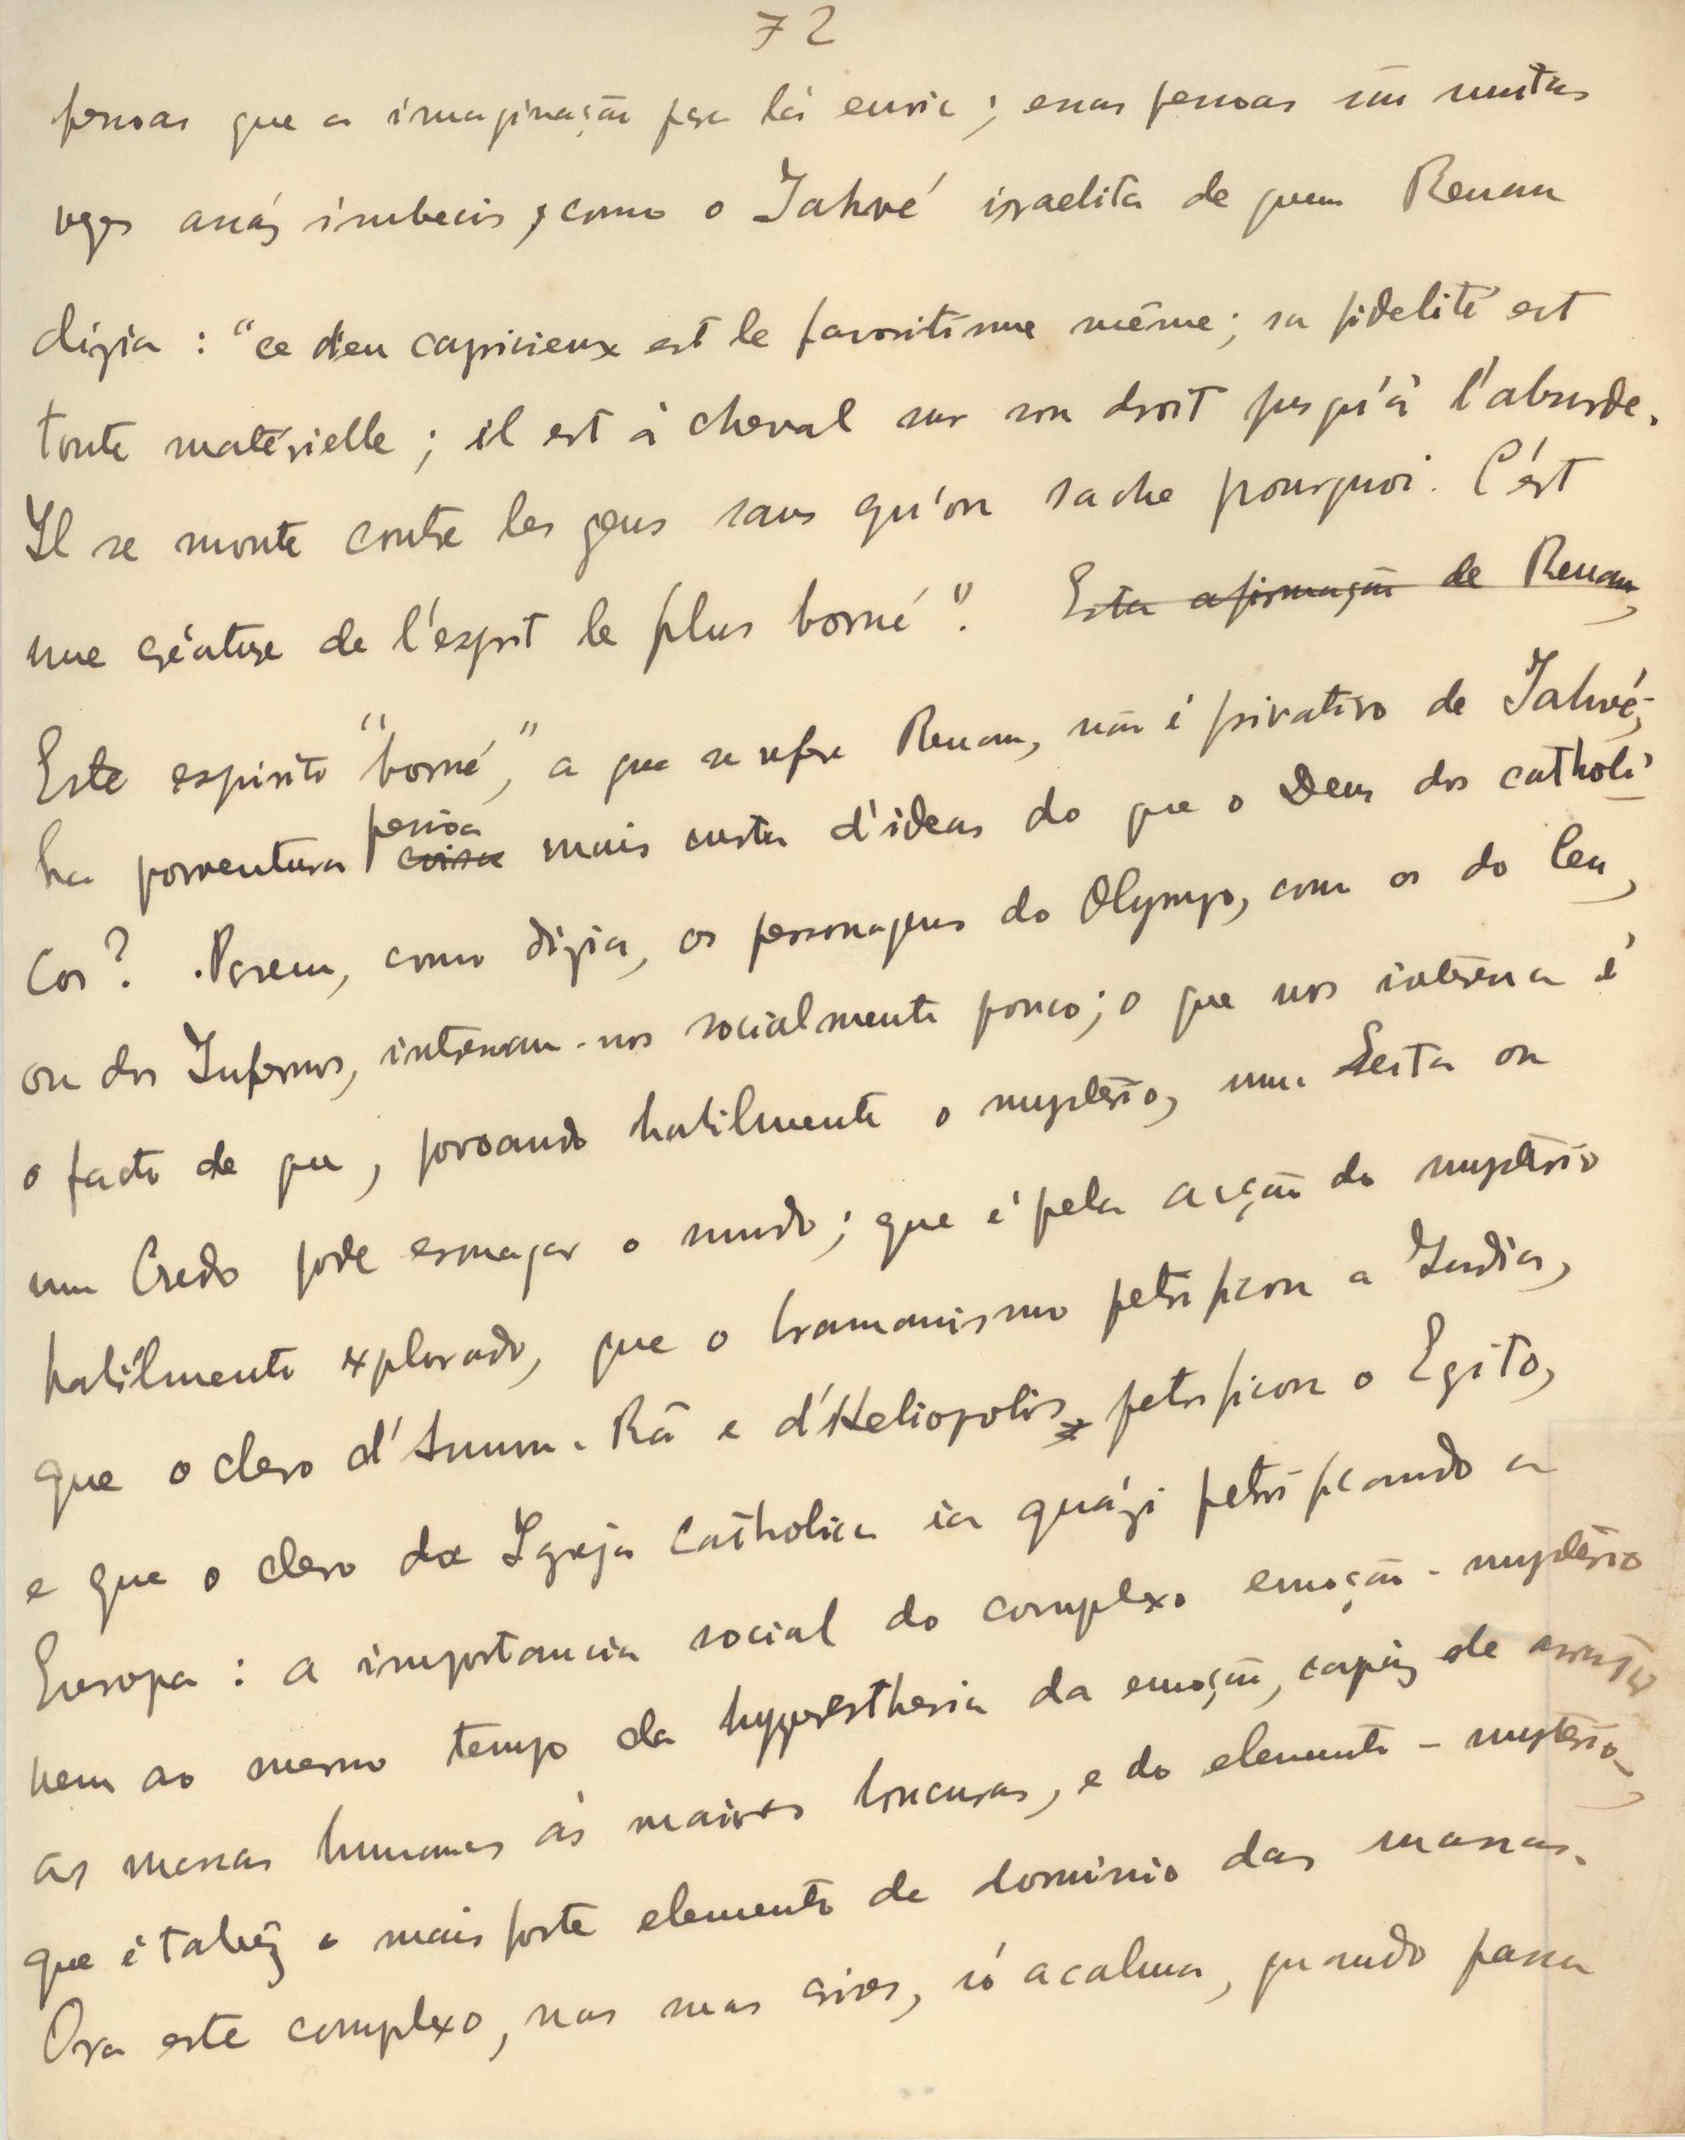 72
pessoas que a imaginação para lá envia; essas pessoas são muitas
vezes assáz imbecis, como o Jahvé israelita de quem Renan
dizia: "ce dieu capricieux est le favoritisme même; sa fidelité est
toute matérielle; il est à cheval sur son droit jusqu'à l'absurde.
Il se monte contre les gens sans qu'on sache pourquoi. C'ést
une créature de l'esprit le plus borné". Esta afirmação de Renan,
Este espirito "borné," a que se refere Renan, não é privativo de Jahvé;
ha porventura pessoa coisa mais curta d'ideas do que o Deus dos catholi-
cos? Porem, como dizia, os personagens do Olympo, com os do Ceu,
ou dos Infernos, interessam-nos socialmente pouco; o que nos interessa é
o facto de que, povoando habilmente o mysterio, uma Seita ou
um Credo póde esmagar o mundo; que é pela acção do mysterio
habilmente explorado, que o bramanismo petrificou a India,
que o clero d'Amum-Rã e d'Heliopolis petrificou o Egito,
e que o clero da Igreja Catholica ia quázi petrificando a
Europa: a importancia social do complexo emoção-mysterio
vem ao mesmo tempo da hyperesthesia da emoção, capáz de
as massas humanas ás maiores loucuras, e do elemento-mysterio,
que é talvêz o mais forte elemento de dominio das massas.
Ora este complexo, nas suas crises, só acalma, quando passa